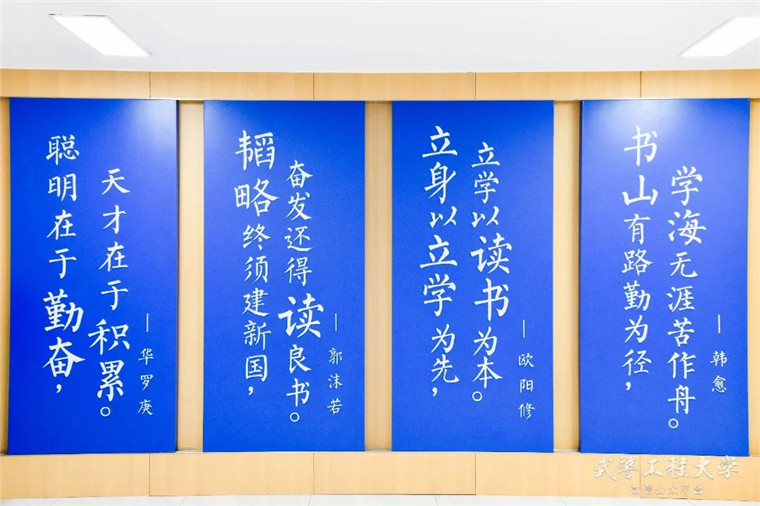 聪明在于勤奋，
天才在于积累。
——华罗庚
韬略终须建新国，
奋发还得读良书。
——郭沫若
立身以立学为先，
立学以读书为本。
——欧阳修
书山有路勤为径，
学海无涯苦作舟。
——韩愈
武汉工程大学
微信公众平台